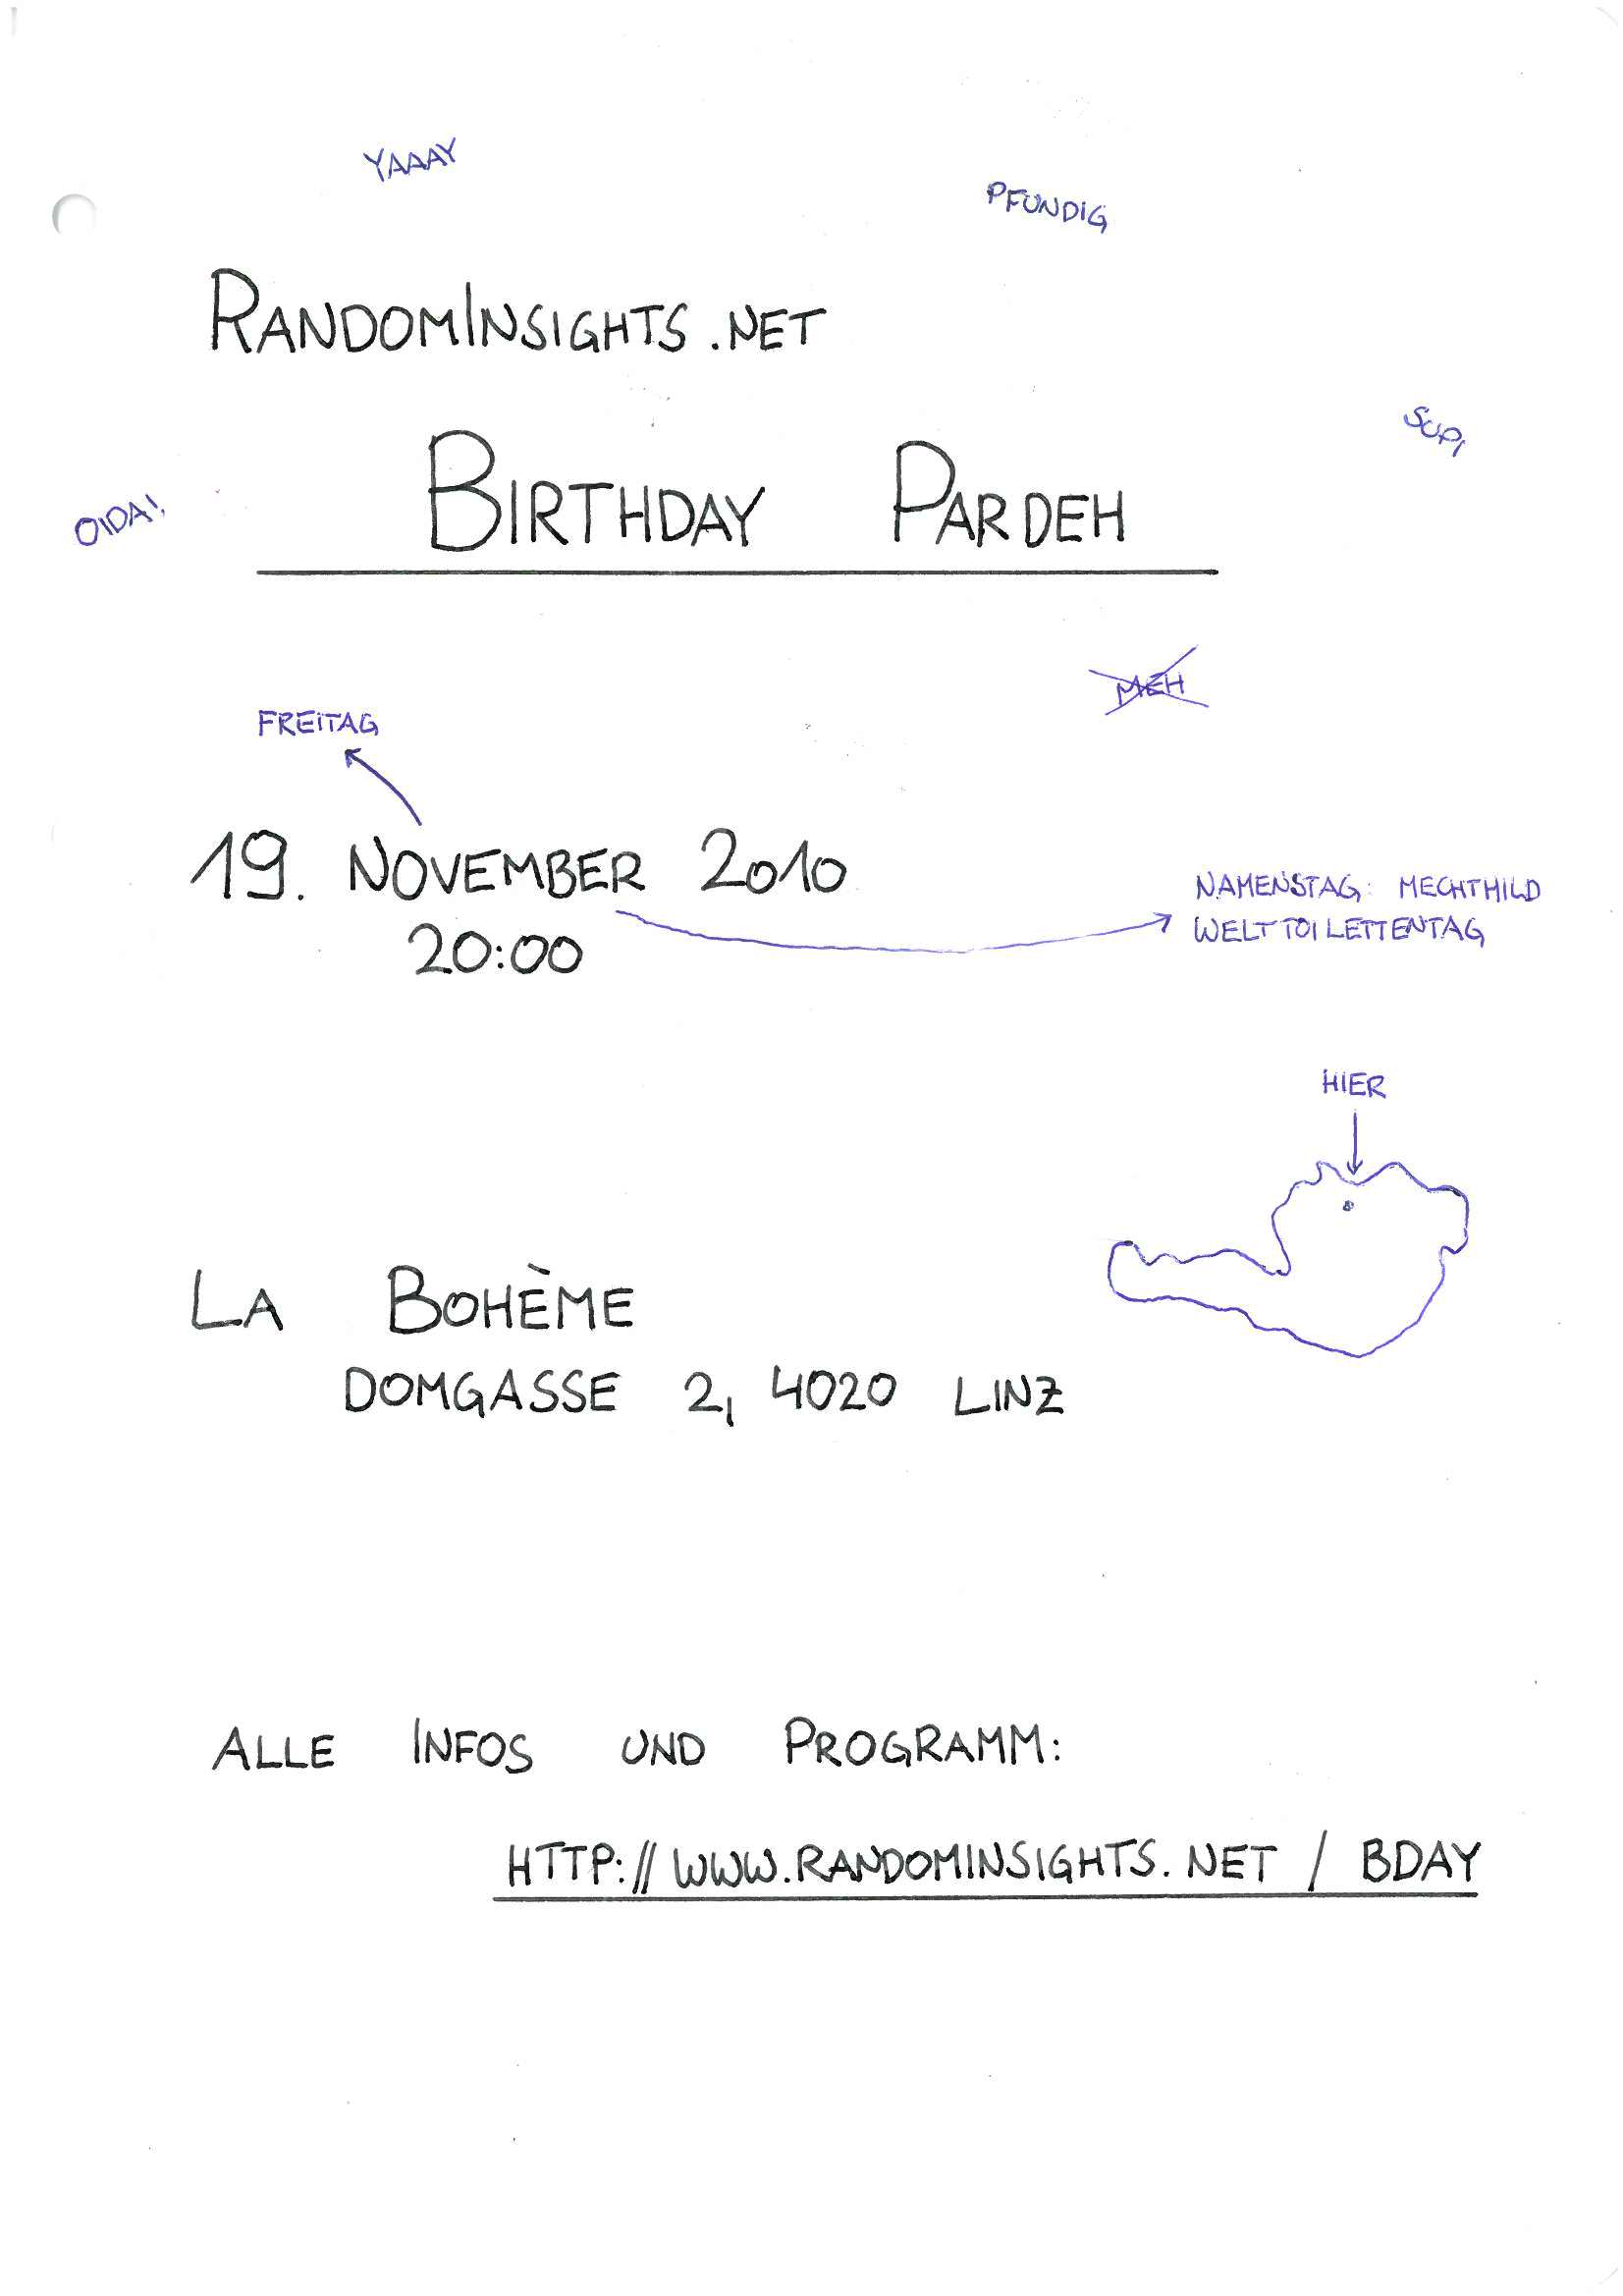 YAAAY
PFUNDIG
RANDOMINSIGHTS.NET
SUPI
OIDA!
BIRTHDAY PARDEH
MEH
FREITAG
19. NOVEMBER 2010
NAMENSTAG: MECHTHILD
WELTTOILETTENTAG
20:00
HIER
LA BOHÈME
DOMGASSE 2, 4020 LINZ
ALLE INFOS UND PROGRAMM:
HTTP://WWW.RANDOMINSIGHTS.NET/BDAY